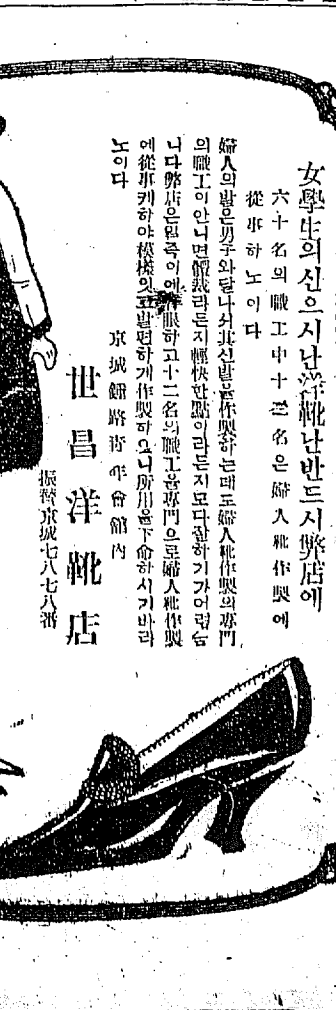 女學生의신으시난洋靴난반드시弊店에
六十名의職工中十二名은婦人靴作製에
從事하노이다
婦人의발은男子와달나서其신발을作製하는때도婦人靴作製의專門
의職工이안니면體裁라든지輕快한點이라든지모다잘하기가어렵슴
니다弊店은일즉이에着眼하고十二名의職工을專門으로婦人靴作製
에從事케하야模樣잇고발편하게作製하오니所用을下命하시기바라
노이다
京城鍾路靑年會館內
世昌洋靴店
振替京城七八七八番